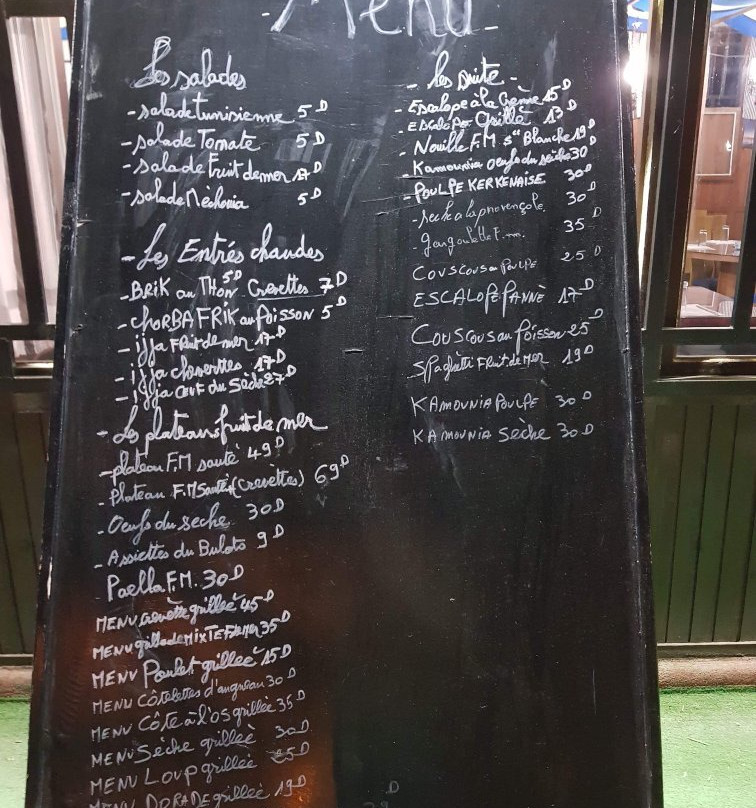 - Menu -
Les salades
- salade Tunisienne 5D
- salade Tomate 5D
- salade Fruit de mer 17D
- salade Mèchouia 5D
- Les Entrés chaudes
- BRIK au THON 5D Crevettes 7D
- CHORBA FRIK au Poisson 5D
- ijja Fruit de mer 17D
- ijja chevrettes 17D
- ijja OEUF du Sèche 27D
- Les plateaus fruit de mer
- plateau F.M sauté 49D
- Plateau F.M Sauté (Crevettes) 69D
- Oeufs du seche 30D
- Assiettes du Bulots 9D
Paella F.M. 30D
MENU Crevette grilleé 45D
MENU grillade MIXTE F de Mer 35D
MENU Poulet grilleé 15D
MENU Côtelettes d'angneau 30D
MENU Côte à l'os grilleé 35D
MENU Sèche grilleé 30D
MENU LOUP grilleé 25D
MENU DORADE grilleé 19D
- les suite -
- Escalope à la Crème 15D
- Escalope Grillé 13D
- Nouille F.M s" Blanche 19D
- Kamounia oeufs du seiche 30D
- POULPE KERKENAISE 30D
- seche a la provençole 30D
- gargoulette F.m. 35D
COUSCOUS au POULPE 25D
ESCALOPE PANNÈ 17D
COUSCOUS au Poisson 25D
SPaghetti Fruit de Mer 19D
KAMOUNIA POULPE 30D
KAMOUNIA Sèche 30D